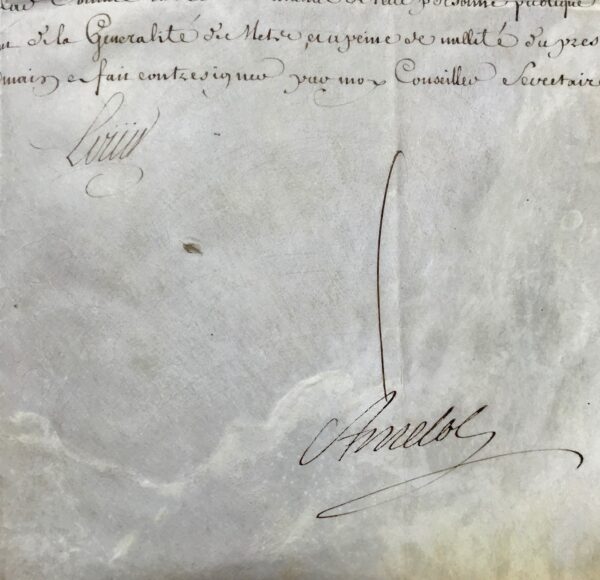 personne publique
de la Generalité de Metz, et a peine de nullité du pres
main et fait contresigner par moy Conseiller Secretaire
Louis
Amelot